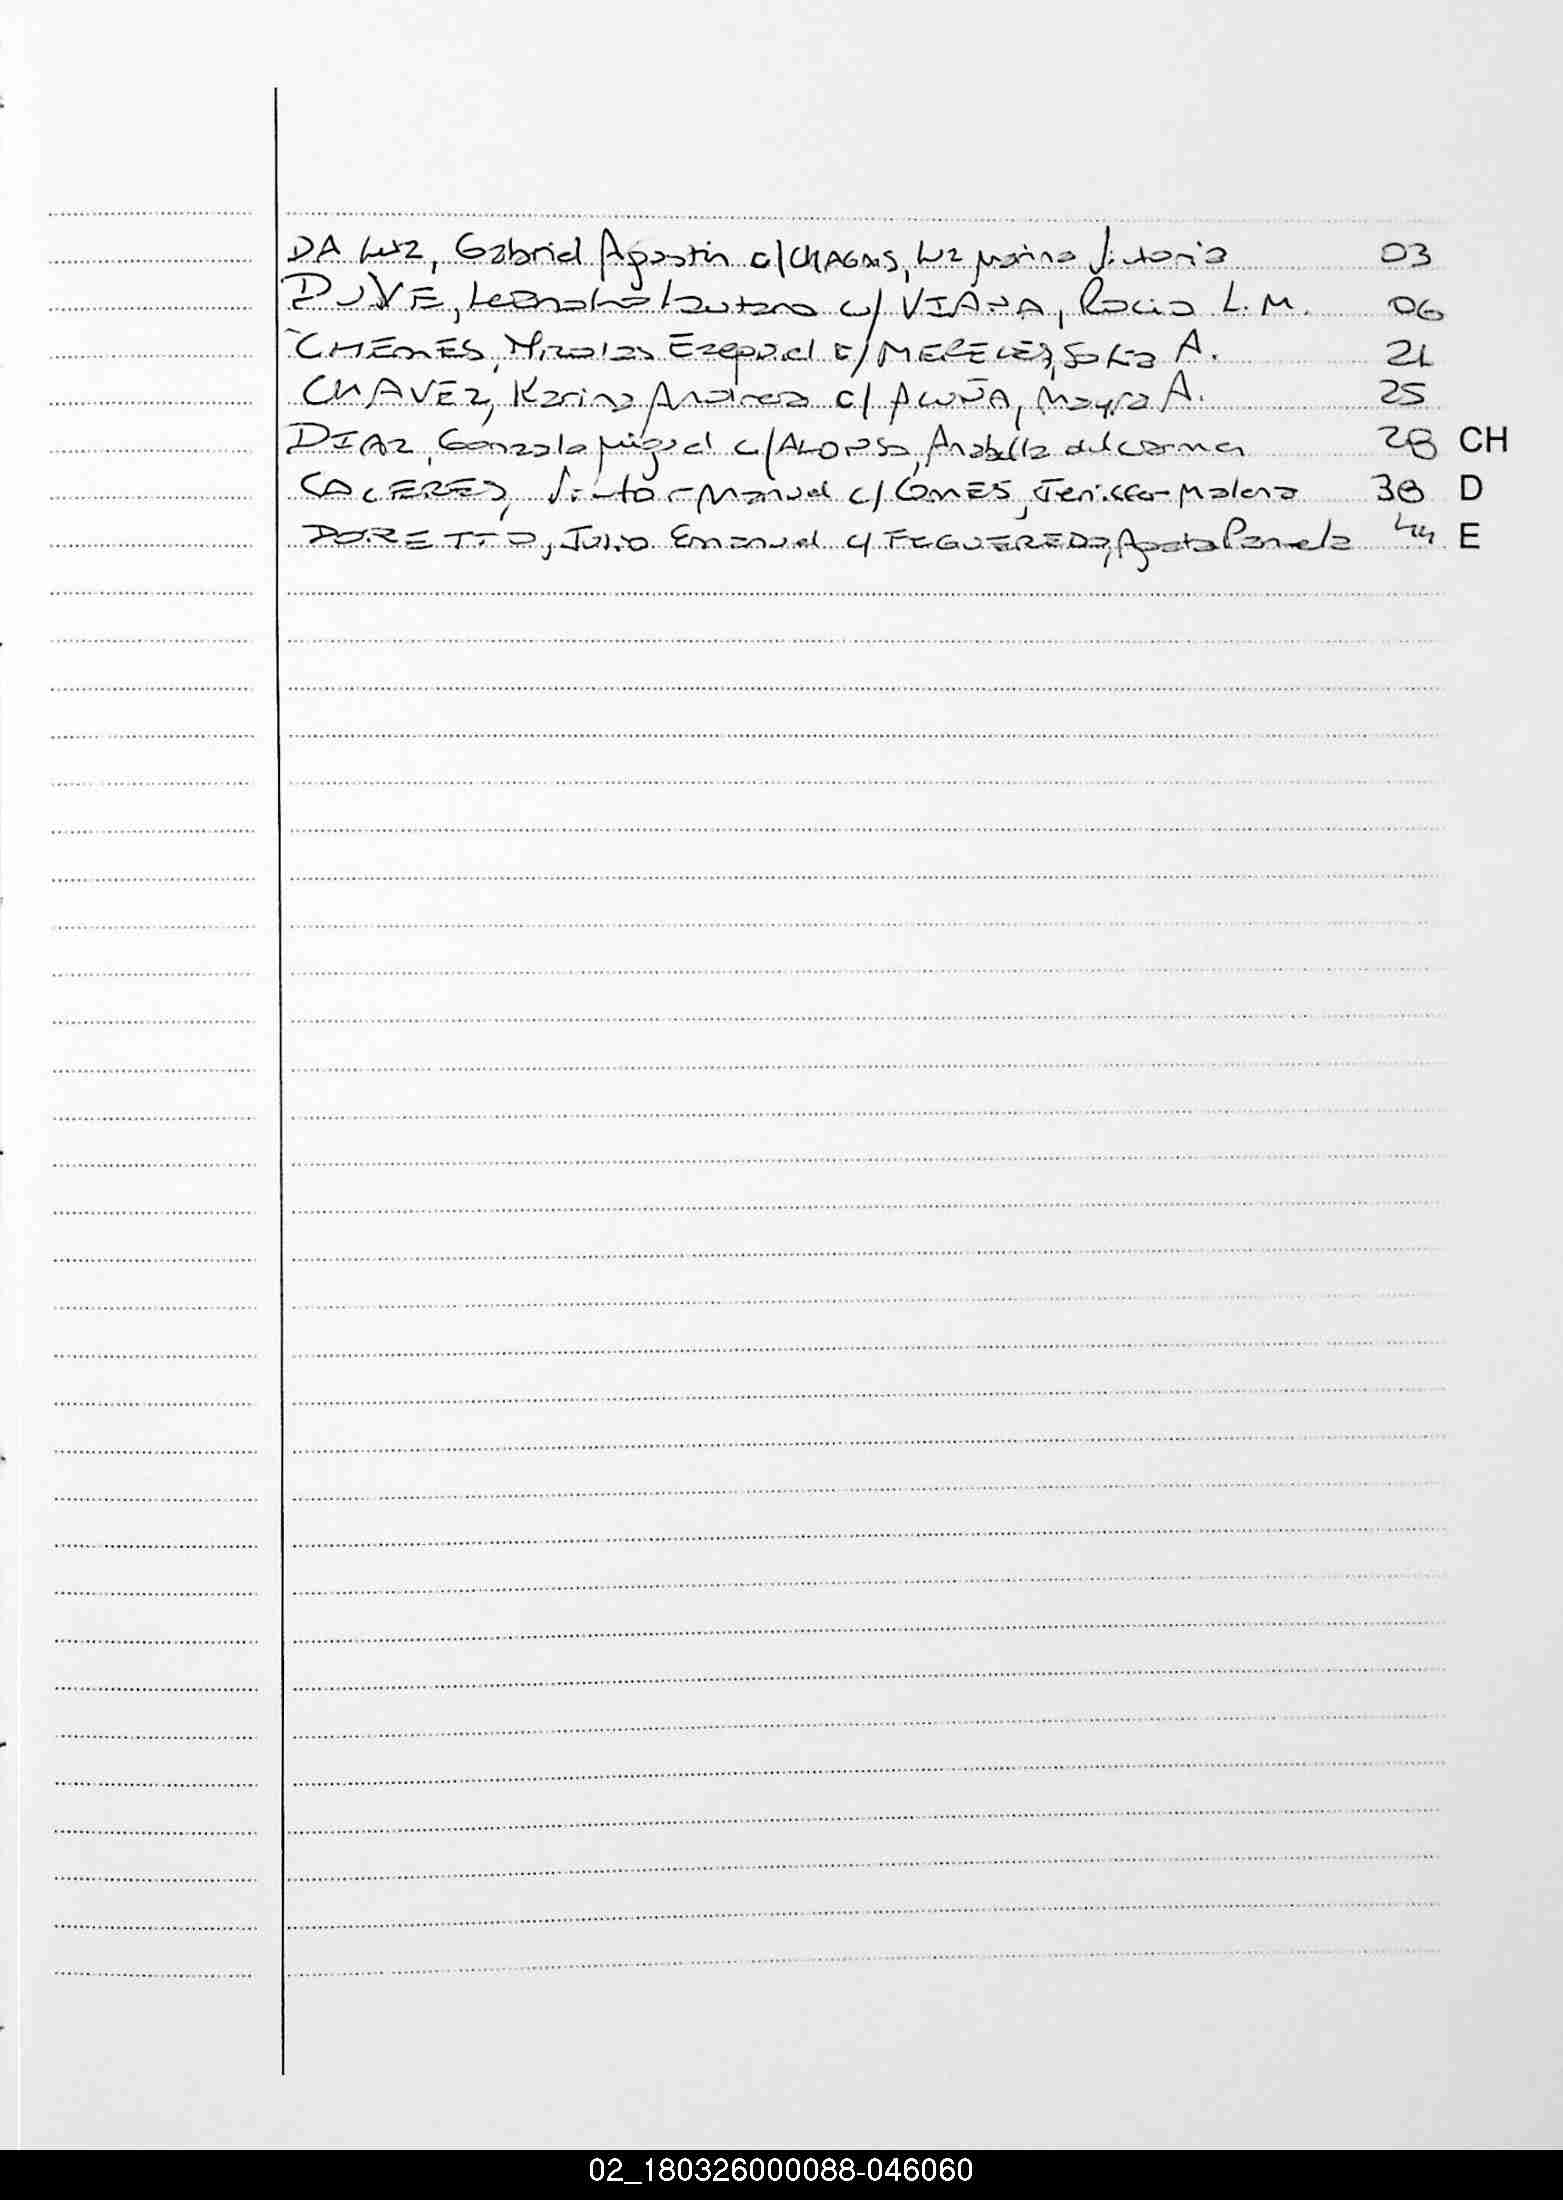 DA LUZ, Gabriel Agostin c/CHAGAS, Luz Marina Victoria 03
DUVE, Leonardo Lautaro c/ VIANA, Rocio L. M. 06
CHEMES, Nicolas Ezequiel c/ MERELES, Sofia A. 21
CHAVEZ, Karina Andrea c/ ACUÑA, Mayra A. 25
DIAZ, Gonzalo Miguel c/ALONSO, Anabella del Carmen 28 CH
CACERES, Victor Manuel c/ GOMES, Malena 38 D
DORETTO, Julio Emanuel c/ FEGUEREDO, Pamela 44 E
02_180326000088-046060